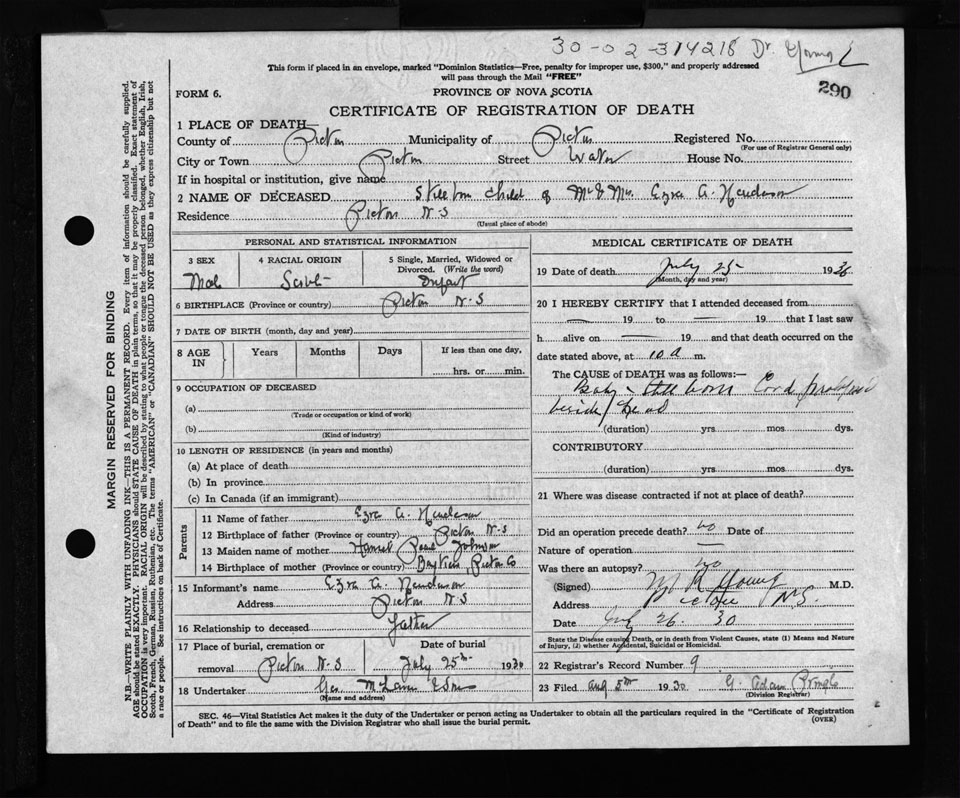 30-02-314218 Dr. Young
This form if placed in an envelope, marked "Dominion Statistics—Free, penalty for improper use, $300," and properly addressed
will pass through the Mail "FREE"
290
FORM 6.
PROVINCE OF NOVA SCOTIA
CERTIFICATE OF REGISTRATION OF DEATH
1 PLACE OF DEATH—
County of Pictou Municipality of Pictou Registered No.
(For use of Registrar General only)
City or Town Pictou Street Water House No.
If in hospital or institution, give name
2 NAME OF DECEASED Stillborn child of Mr & Mrs. Ezra A. Henderson
Residence Pictou N.S
(Usual place of abode)
PERSONAL AND STATISTICAL INFORMATION
3 SEX 4 RACIAL ORIGIN 5 Single, Married, Widowed or
Divorced. (Write the word)
Male Scotch Infant
6 BIRTHPLACE (Province or country) Pictou N.S
7 DATE OF BIRTH (month, day and year)
8 AGE IN Years Months Days If less than one day,
hrs. or min.
9 OCCUPATION OF DECEASED
(a)
(Trade or occupation or kind of work)
(b)
(Kind of industry)
10 LENGTH OF RESIDENCE (in years and months)
(a) At place of death
(b) In province
(c) In Canada (if an immigrant)
Parents
11 Name of father Ezra A. Henderson
12 Birthplace of father (Province or country) Pictou N.S
13 Maiden name of mother Pearl Johnson
14 Birthplace of mother (Province or country) Pictou Co
15 Informant's name Ezra A. Henderson
Address Pictou N S
16 Relationship to deceased Father
17 Place of burial, cremation or Date of burial
removal Pictou N.S July 25th 1930
18 Undertaker Geo. & Son
(Name and address)
MEDICAL CERTIFICATE OF DEATH
19 Date of death July 25 1930
(Month, day and year)
20 I HEREBY CERTIFY that I attended deceased from
— 19 to — 19 that I last saw
h alive on — 19 and that death occurred on the
date stated above, at 10 a m.
The CAUSE of DEATH was as follows:—
Baby still born Cord prolapsed
beside head
(duration) yrs mos dys.
CONTRIBUTORY
(duration) yrs mos dys.
21 Where was disease contracted if not at place of death?
Did an operation precede death? no Date of
Nature of operation —
Was there an autopsy? no
(Signed) Young M.D.
Address Pictou N.S.
Date July 26 30
State the Disease causing Death, or in death from Violent Causes, state (1) Means and Nature
of Injury, (2) whether Accidental, Suicidal or Homicidal.
22 Registrar's Record Number 9
23 Filed Aug 5th 1930 G. Adam Pringle
(Division Registrar)
SEC. 46—Vital Statistics Act makes it the duty of the Undertaker or person acting as Undertaker to obtain all the particulars required in the "Certificate of Registration
of Death" and to file the same with the Division Registrar who shall issue the burial permit.
(OVER)
MARGIN RESERVED FOR BINDING
N.B.—WRITE PLAINLY WITH UNFADING INK—THIS IS A PERMANENT RECORD. Every item of information should be carefully supplied.
AGE should be stated EXACTLY. PHYSICIANS should STATE CAUSE OF DEATH in plain terms, so that it may be properly classified. Exact statement of
OCCUPATION is very important. RACIAL ORIGIN will be described by stating to what people or tongue the deceased person belonged, whether English, Irish,
Scotch, French, German, Russian, Ruthenian, etc. The terms "AMERICAN" or "CANADIAN" SHOULD NOT BE USED as they express citizenship but not
a race or people. See instructions on back of Certificate.